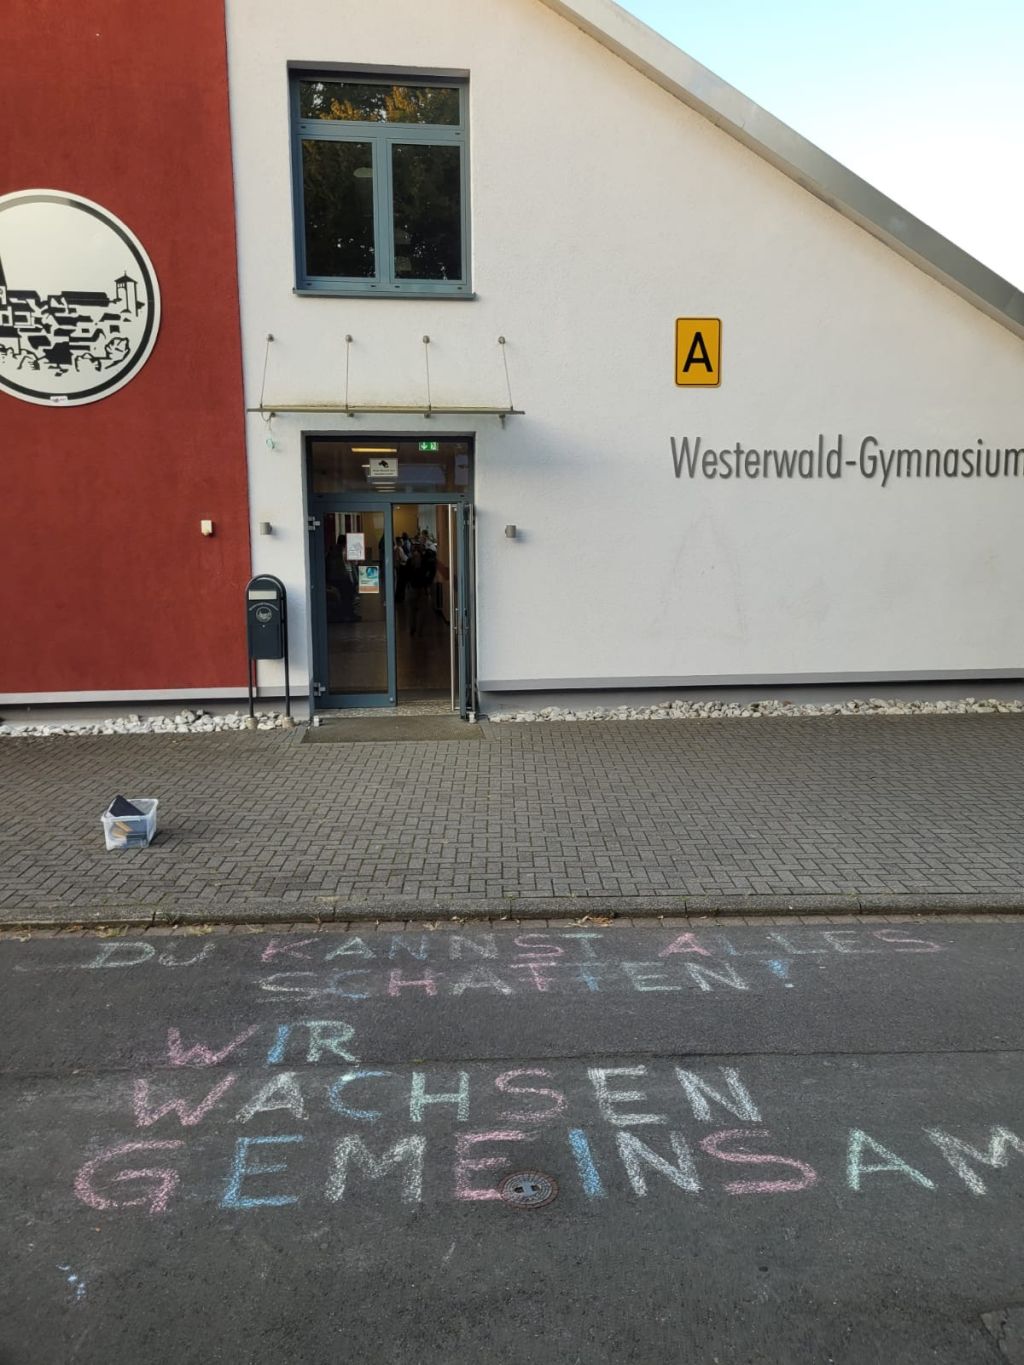 A
Westerwald-Gymnasium
DU KANNST ALLES
SCHATTEN!
WIR
WACHSEN
GEMEINSAM